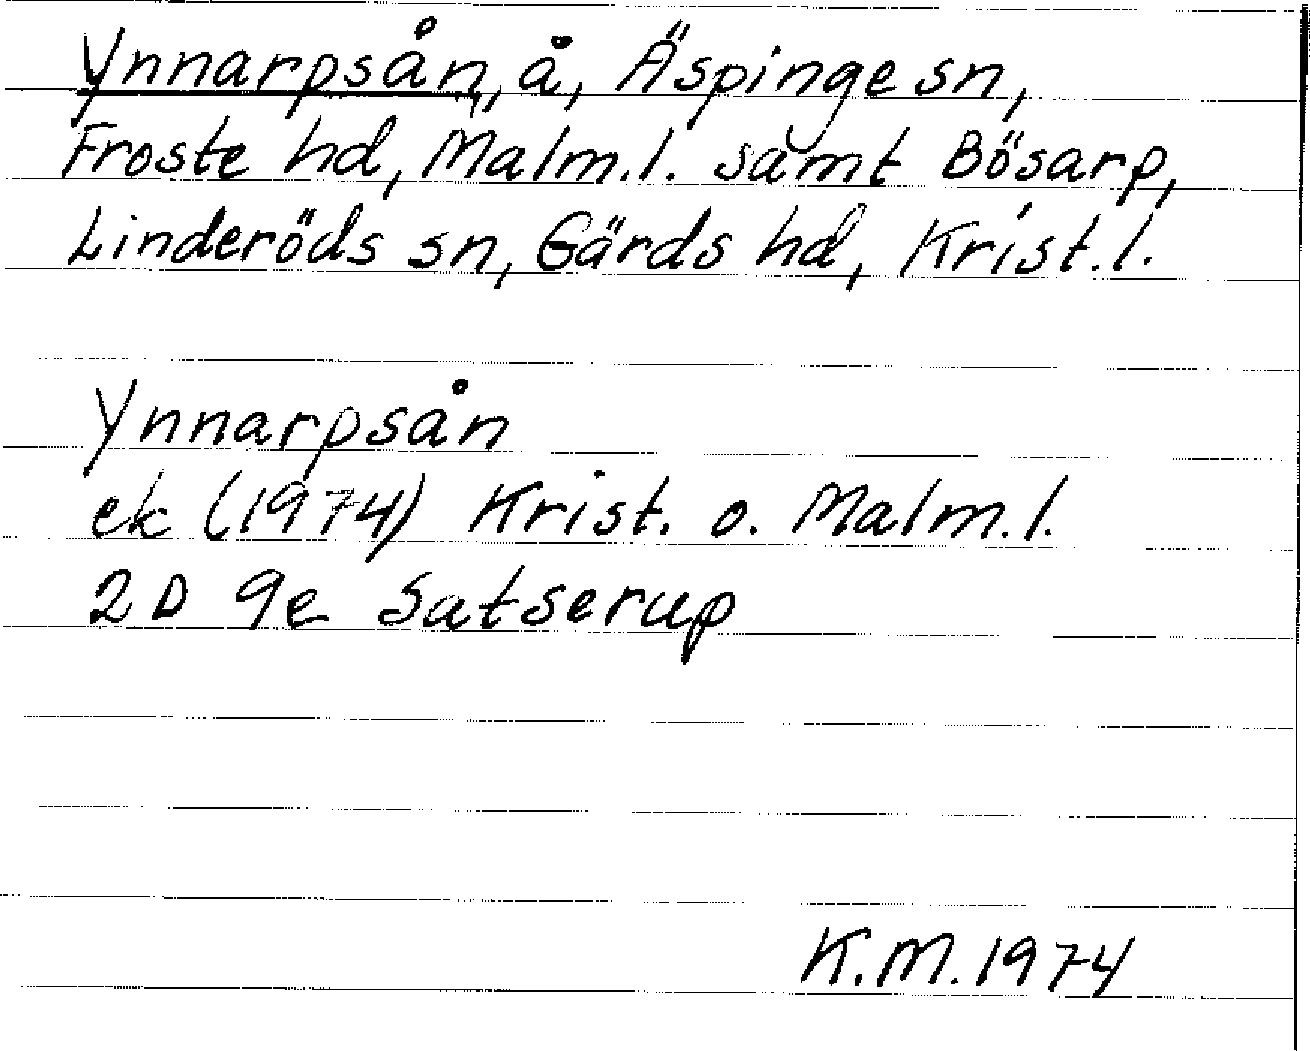 Ynnarpsån, å, Äspinge sn,
Froste hd, Malm.l. samt Bösarp,
Linderöds sn, Gärds hd, Krist.l.
Ynnarpsån
ek (1974) Krist. o. Malm.l.
2D 9e Satserup
K.M. 1974